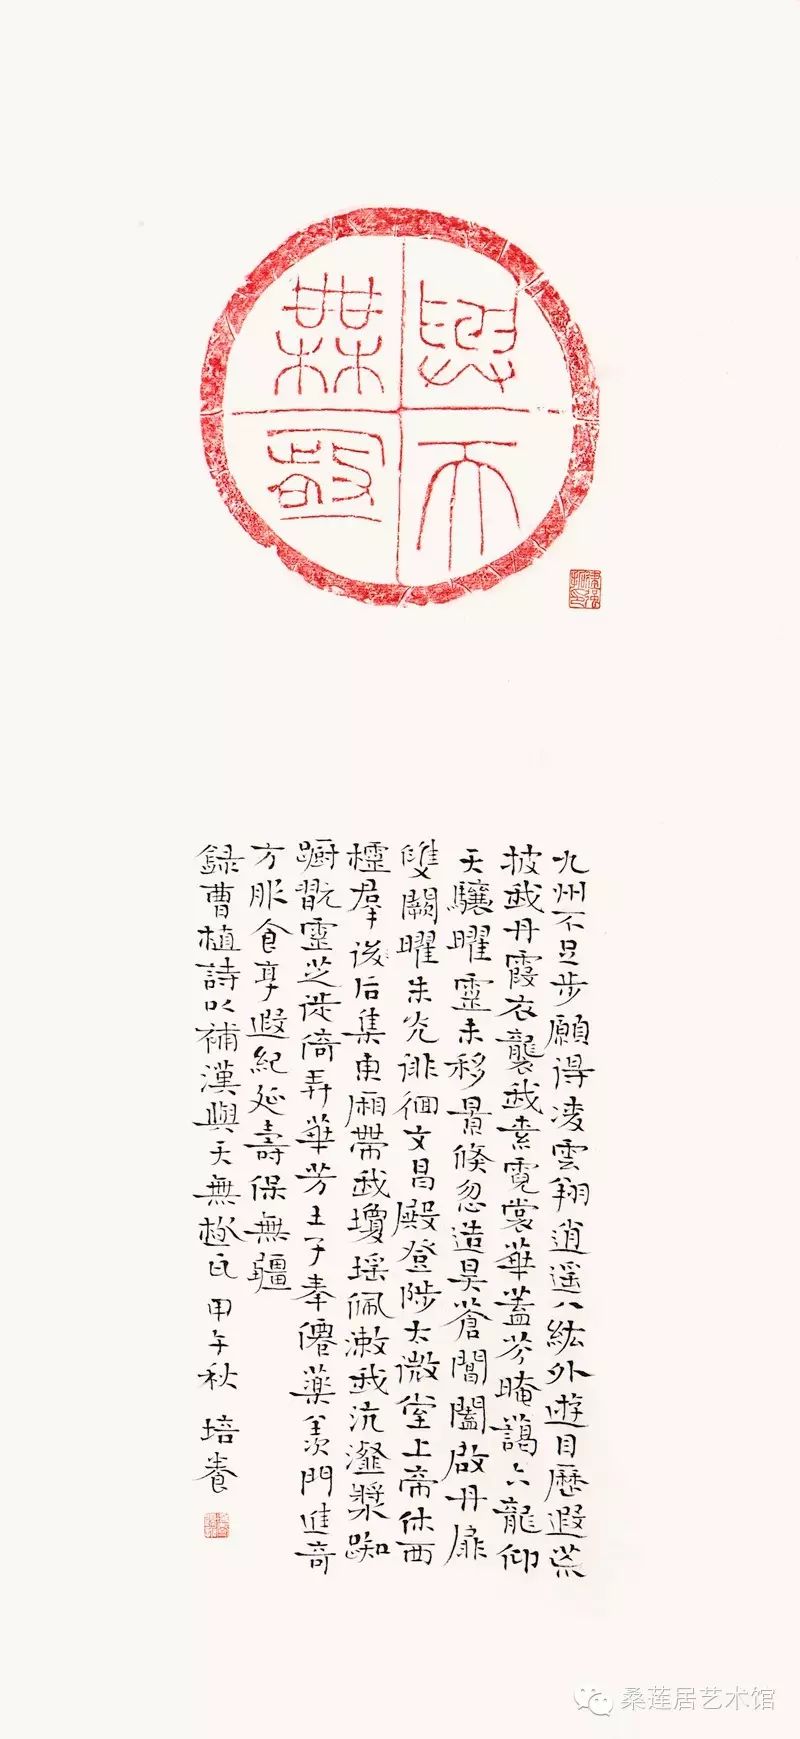 與天
無極
九州不足步願得凌雲翔逍遥八紘外遊目歷遐荒
披我丹霞衣襲我素霓裳華蓋芬晻藹六龍仰
天驤曜靈未移景倏忽造昊蒼閶闔啟丹扉
雙闕曜朱光徘徊文昌殿登陟太微堂上帝休西
櫺羣後后集東廂帶我瓊瑤佩漱我沆瀣漿踟
蹰翫靈芝徙倚弄華芳王子奉僊藥羨門進奇
方服食享遐紀延壽保無疆
録曹植詩以補漢與天無極瓦 甲午秋 培養
桑莲居艺术馆